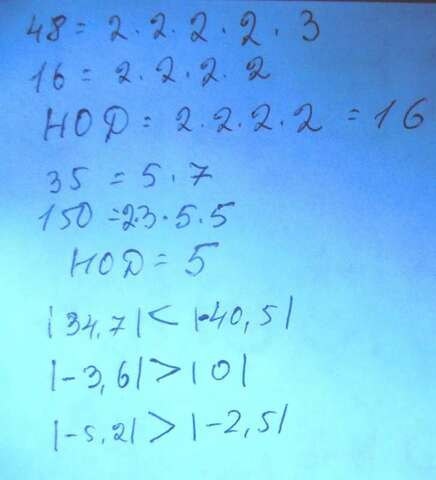 48 = 2 · 2 · 2 · 2 · 3
16 = 2 · 2 · 2 · 2
НОД = 2 · 2 · 2 · 2 = 16
35 = 5 · 7
150 = 2·3·5·5
НОД = 5
|34,7| < |-40,5|
|-3,6| > |0|
|-5,2| > |-2,5|